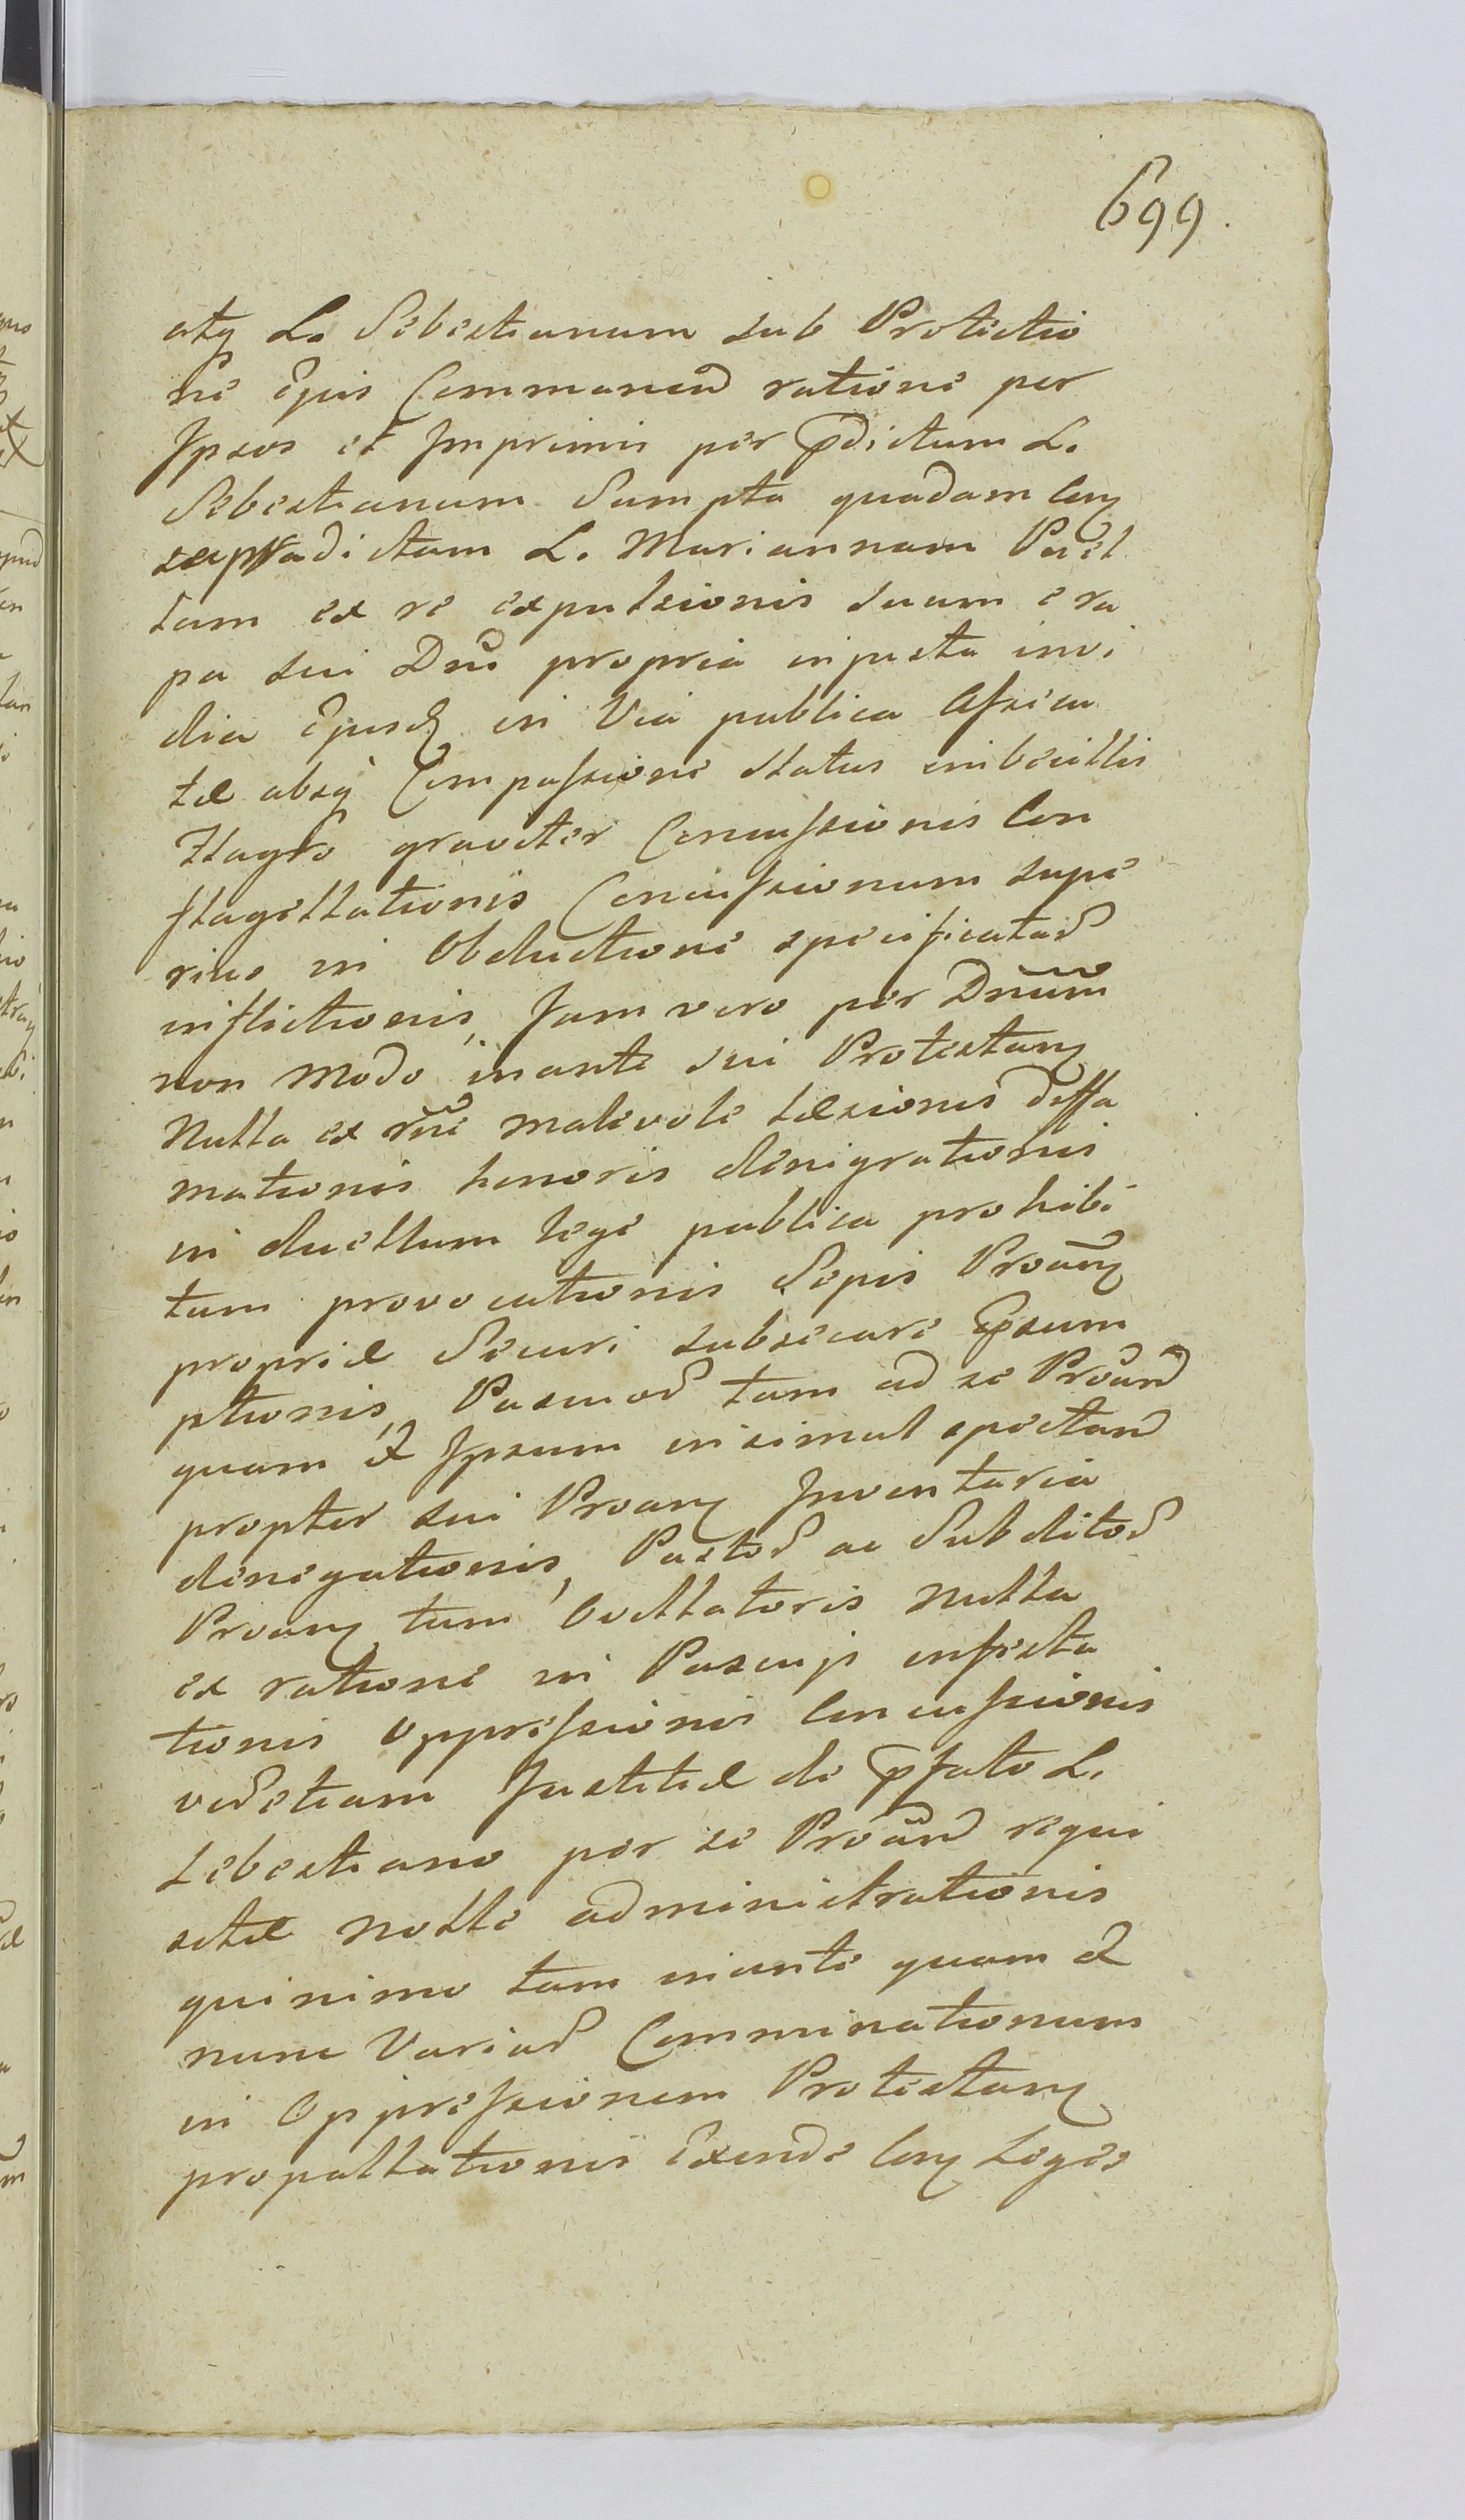 699.
atq L. Sebestianum sub Protectio
ne Ejus Commanend ratione per
Ipsos et Imprimis per Pdictum L.
Sebestianum Sumpta quadam Con
supradictam L. Mariannam Puel
lam ex re expulsionis suum e ra
pa sui Dni propria injusta invi
dia Ejusd in Via publica
tæ absq Compassione status imbecillis
Flagro graviter Concussionis Con
flagellationis Concussionum supe
rius in Obductione specificatar
inflictionis, Jam vero per Dnum
non modo inante sui Protestan
Nulla ex rne malevole læsionis diffa
mationis honoris denigrationis
in duellum lege publica prohibi
tum provocationis Sepis Proan
propriæ Securi subsecare
ptionis, Pascuor tam ad se Proand
quam & Ipsum insimul spectand
propter sui Proan Inventaria
denegationis, Pastor ac Subditor
Proan tum Ovellatoris Nulla
ex ratione in Pascujs infecta
tionis Oppressionis Concussionis
vesetiam Justitiæ de Pfato L.
Sebestiano per se Proand requi
sitæ Nolle administrationis
quinimo tam inante quam &
nunc Variar Comminationum
in Oppressionem Protestan
propallationis Exinde Con Leges